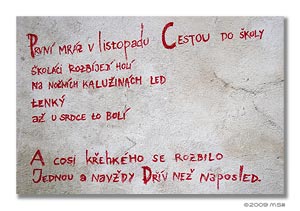 První mráz v listopadu Cestou do školy
školáci rozbíjejí holí
na nočních kalužinách led
tenký
až u srdce to bolí
A cosi křehkého se rozbilo
Jednou a navždy Dřív než naposled.
©2009 msa